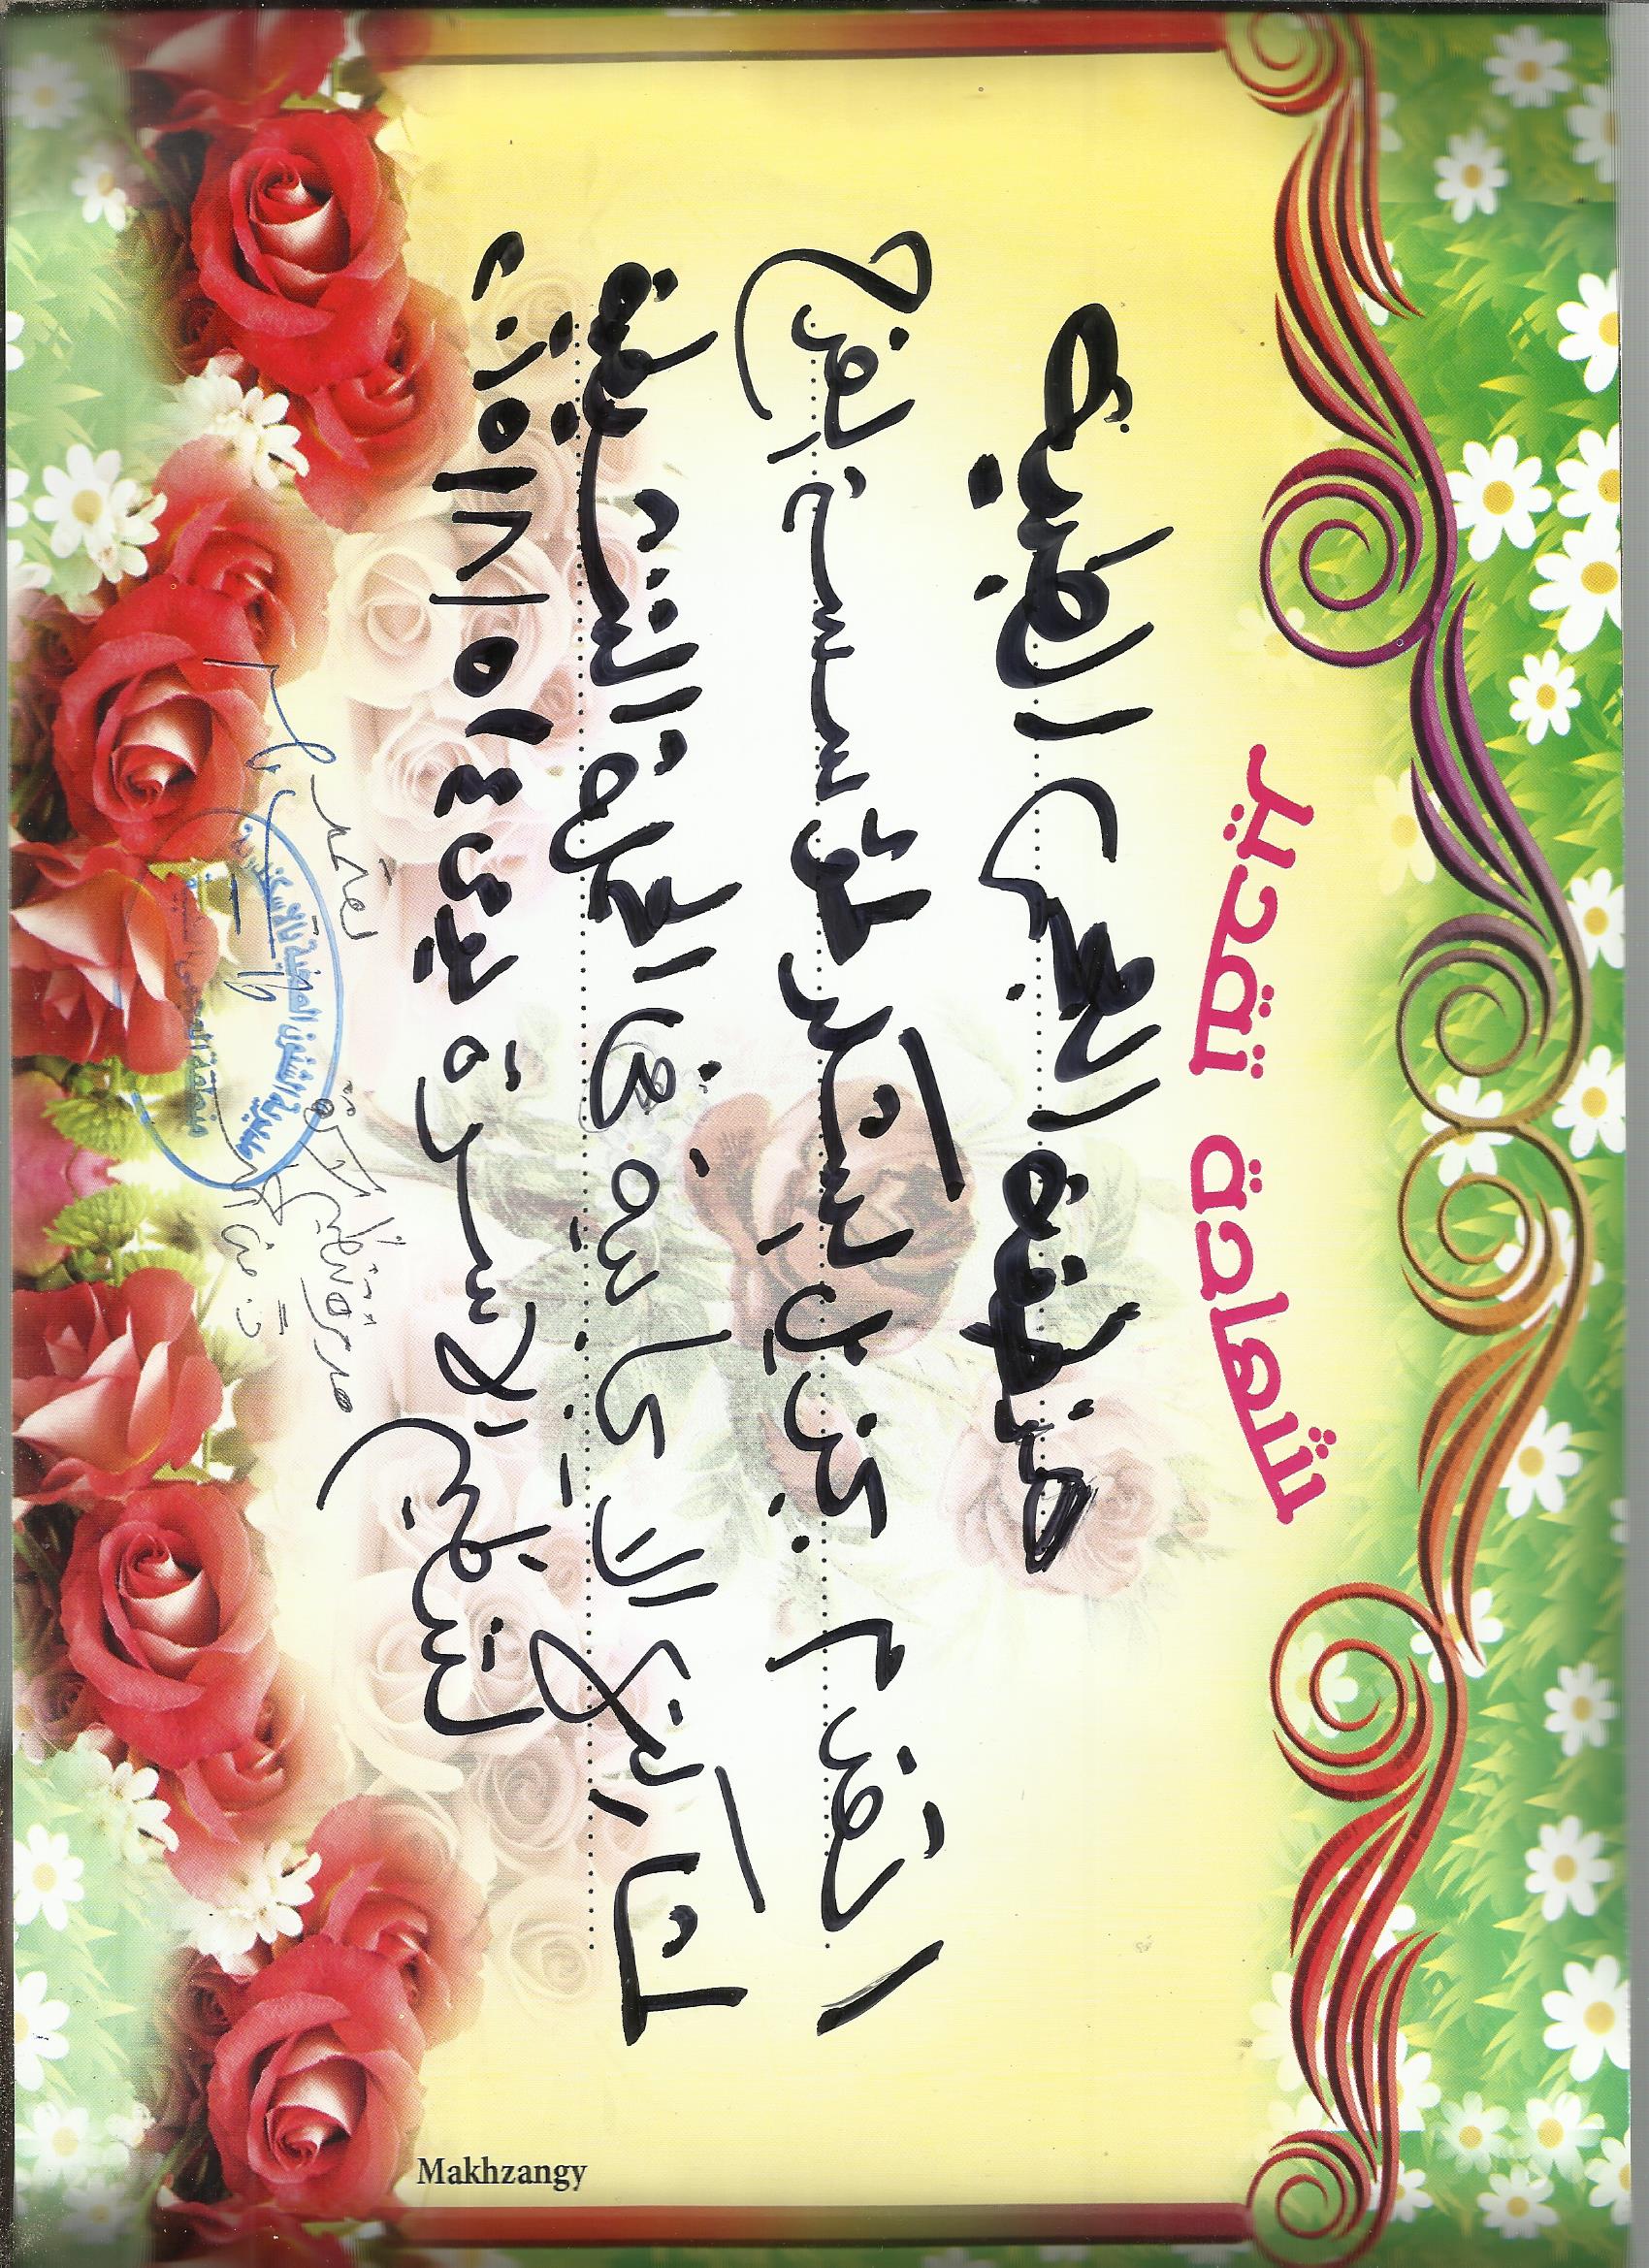 شهادة تقدير
منطقة العجمى الطبية
اتقدم بجزيل الشكر لمؤسسة الفرح
لمشاركتها الايجابية فى الحملة التنشيطية
لتنظيم الاسرة يومى ٤ ، ٥ / ٨ / ٢٠١٥
يعتمد
مديرة تنظيم الاسرة
د. منى
مديرية الشئون الصحية بالاسكندرية
منطقة العجمى الطبية
Makhzangy